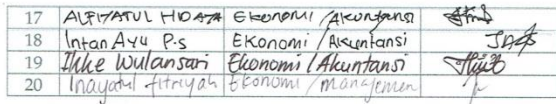 17 ALFIYATUL HIDAYA Ekonomi / Akuntansi
18 Intan Ayu P.s Ekonomi / Akuntansi
19 Ikke Wulansari Ekonomi / Akuntansi
20 Inayatul fitriyah Ekonomi / manajemen